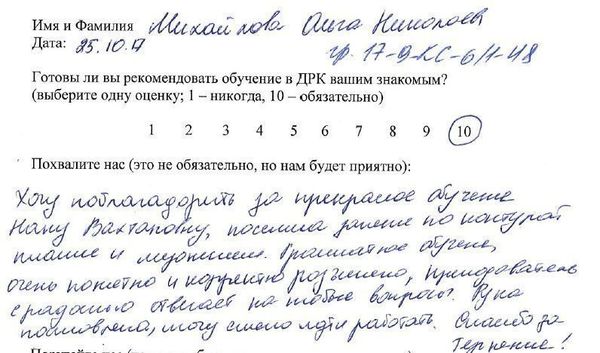 Имя и Фамилия Михайлова Ольга Николаевн
Дата: 25.10.17 гр. 17-9-КС-6/1-48
Готовы ли вы рекомендовать обучение в ДРК вашим знакомым?
(выберите одну оценку; 1 – никогда, 10 – обязательно)
1 2 3 4 5 6 7 8 9 10
Похвалите нас (это не обязательно, но нам будет приятно):
Хочу поблагадорить за прекрасное обучение
Нану Вахтановну, посетила занение по контурой
пластике и мезотерапии. Грамматное обучение,
очень понятно и корректно розъяснено, преподаватель
с радостью отвечает на любые вопросы. Рука
поставлена, могу смело идти работать. Спасибо за
терпение!